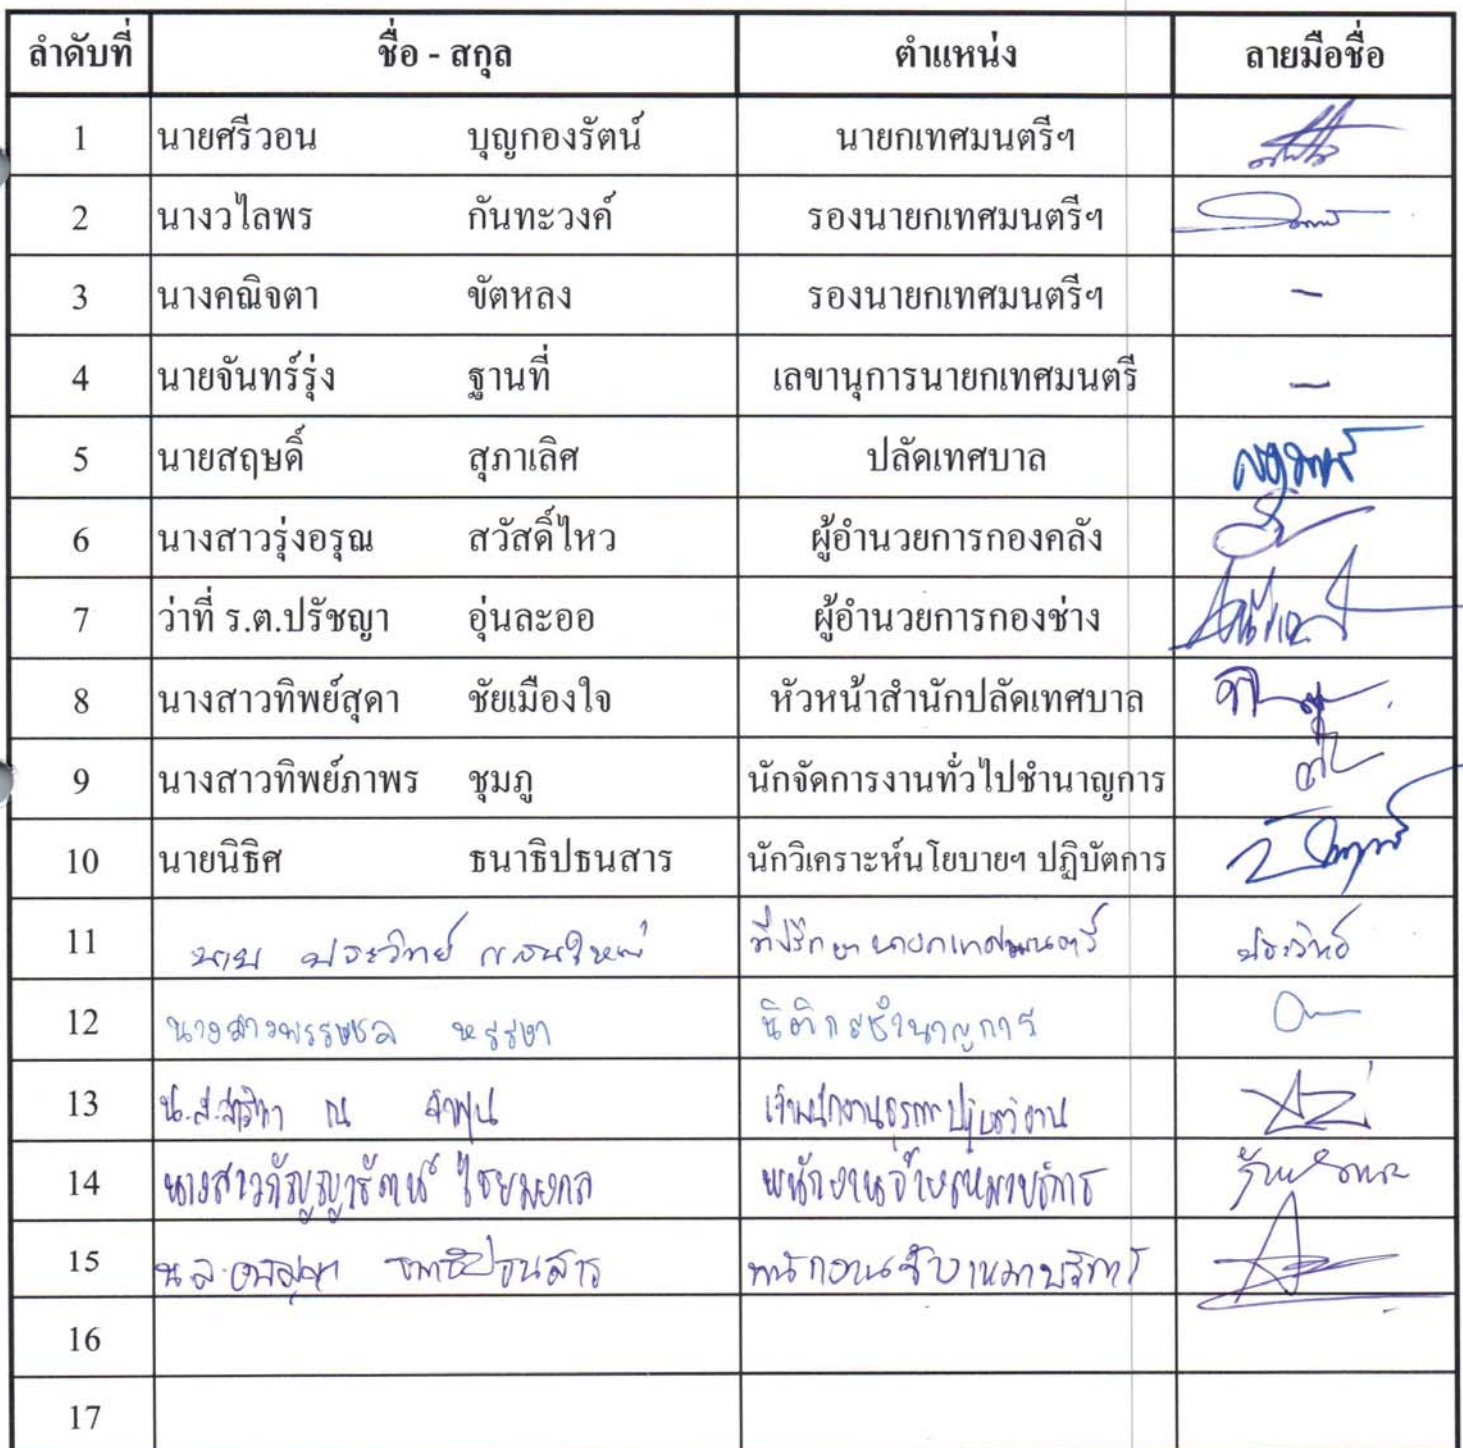 ลำดับที่ ชื่อ - สกุล ตำแหน่ง ลายมือชื่อ
1 นายศรีวอน บุญกองรัตน์ นายกเทศมนตรีฯ
2 นางวไลพร กันทะวงค์ รองนายกเทศมนตรีฯ
3 นางคณิจตา ขัตหลง รองนายกเทศมนตรีฯ -
4 นายจันทร์รุ่ง ฐานที่ เลขานุการนายกเทศมนตรี -
5 นายสฤษดิ์ สุภาเลิศ ปลัดเทศบาล
6 นางสาวรุ่งอรุณ สวัสดิ์ไหว ผู้อำนวยการกองคลัง
7 ว่าที่ ร.ต.ปรัชญา อุ่นละออ ผู้อำนวยการกองช่าง
8 นางสาวทิพย์สุดา ชัยเมืองใจ หัวหน้าสำนักปลัดเทศบาล
9 นางสาวทิพย์ภาพร ชุมภู นักจัดการงานทั่วไปชำนาญการ
10 นายนิธิศ ธนาธิปธนสาร นักวิเคราะห์นโยบายฯ ปฏิบัตการ
11 นาย ประวิทย์ แสนใหม่ ที่ปรึกษานายกเทศมนตรี ประวิทย์
12 นางสาวพรรษชล หรรษา นิติกรชำนาญการ
13 น.ส. ณ ลำพูน เจ้าพนักงานธุรการปฏิบัติงาน
14 นางสาวกัญญารัตน์ ไชยมงคล พนักงานจ้างเหมาบริการ
15 น.ส. ธนาธิปธนสาร พนักงานจ้างเหมาบริการ
16
17